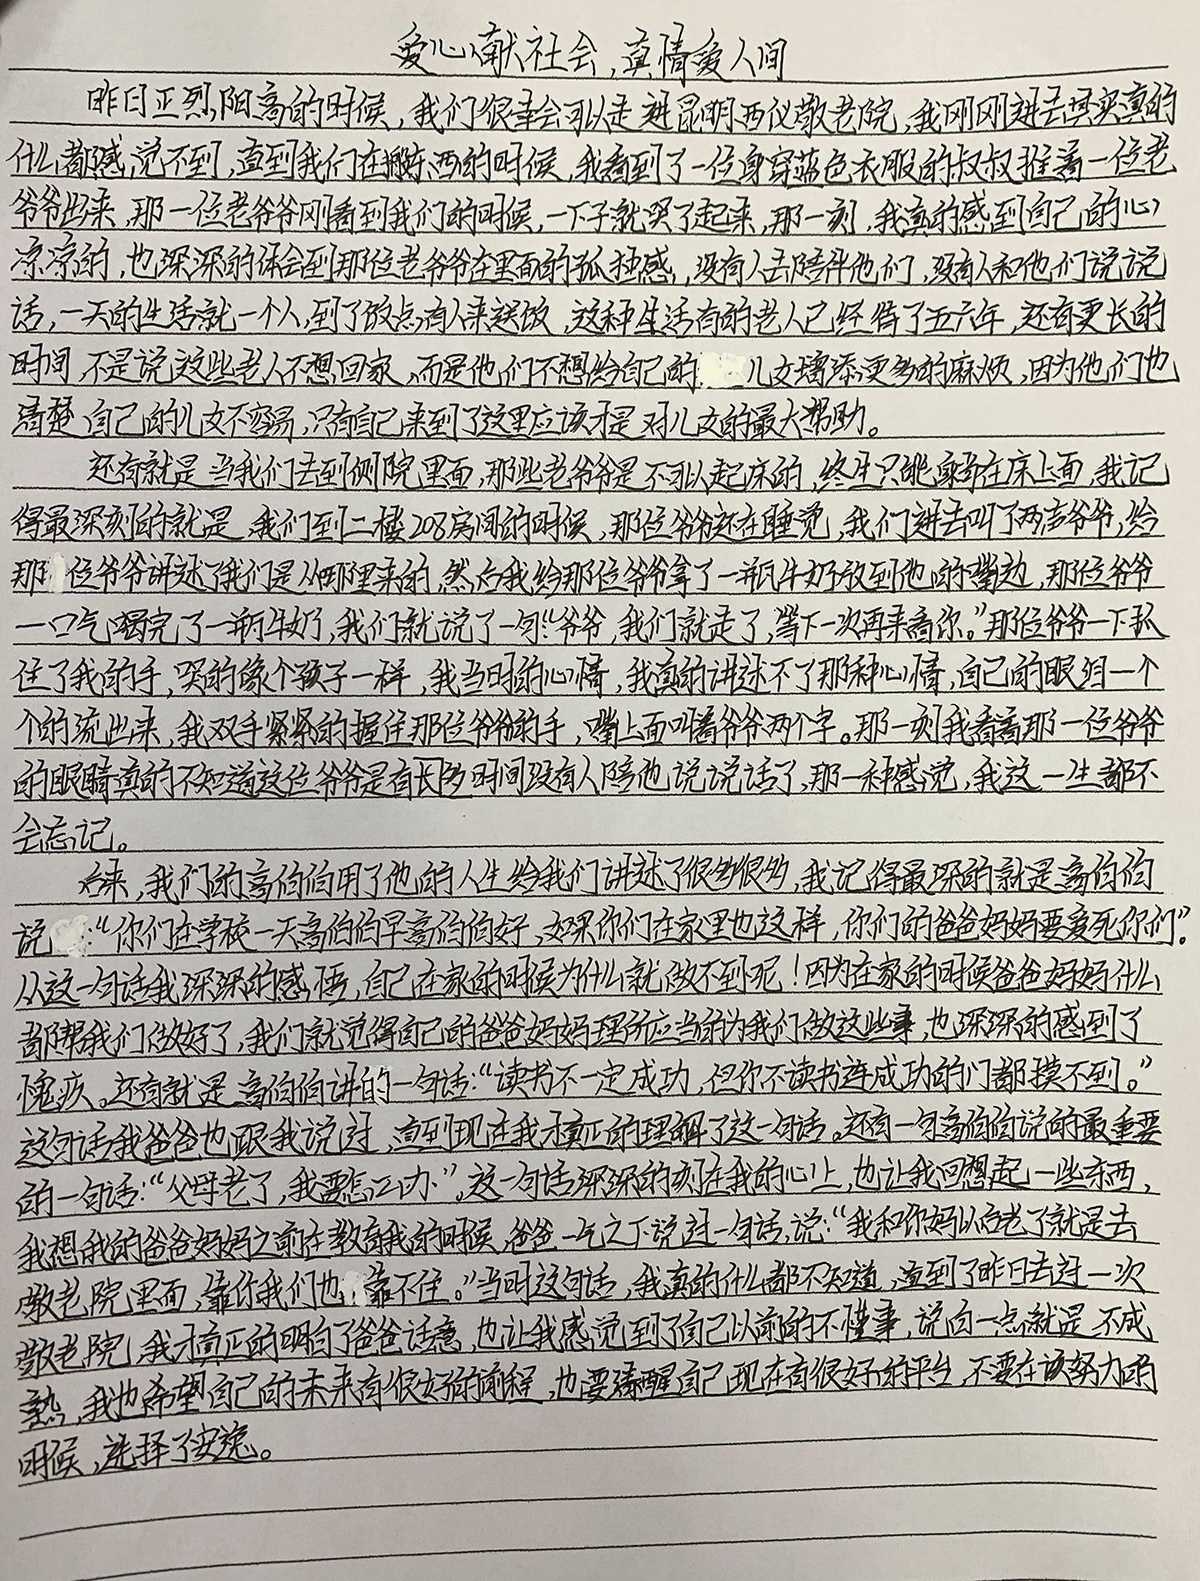 爱心献社会，真情爱人间
昨日正烈阳高的时候，我们很幸会可以走进昆明西仪敬老院，我刚刚进去其实真的
什么都感觉不到，直到我们在搬东西的时候，我看到了一位身穿蓝色衣服的叔叔推着一位老
爷爷出来，那一位老爷爷刚看到我们的时候，一下子就哭了起来，那一刻，我真的感到自己的心
凉凉的，也深深的体会到那位老爷爷在里面的孤独感，没有人去陪伴他们，没有人和他们说说
话，一天的生活就一个人，到了饭点有人来送饭，这种生活有的老人已经待了五六年，还有更长的
时间，不是说这些老人不想回家，而是他们不想给自己的儿女增添更多的麻烦，因为他们也
清楚自己的儿女不容易，只有自己来到了这里应该才是对儿女的最大帮助。
还有就是当我们去到侧院里面，那些老爷爷是不可以起床的，终生只能躺在床上面，我记
得最深刻的就是，我们到二楼208房间的时候，那位爷爷还在睡觉，我们进去叫了两声爷爷，给
那位爷爷讲述了我们是从哪里来的，然后我给那位爷爷拿了一瓶牛奶放到他的嘴边，那位爷爷
一口气喝完了一瓶牛奶，我们就说了一句：“爷爷，我们就走了，等下一次再来看你。”那位爷爷一下抓
住了我的手，哭的像个孩子一样，我当时的心情，我真的讲述不了那种心情，自己的眼泪一个
个的流出来，我双手紧紧的握住那位爷爷的手，嘴上面叫着爷爷两个字。那一刻我看着那一位爷爷
的眼睛真的不知道这位爷爷是有长多时间没有人陪他说说话了，那一种感觉，我这一生都不
会忘记。
后来，我们的高伯伯用了他的人生给我们讲述了很多很多，我记得最深的就是高伯伯
说：“你们在学校一天高伯伯早高伯伯好，如果你们在家里也这样，你们的爸爸妈妈要爱死你们”。
从这一句话我深深的感悟，自己在家的时候为什么就做不到呢！因为在家的时候爸爸妈妈什么
都帮我们做好了，我们就觉得自己的爸爸妈妈理所应当的为我们做这些事，也深深的感到了
愧疚。还有就是高伯伯讲的一句话：“读书不一定成功，但你不读书连成功的门都摸不到。”
这句话我爸爸也跟我说过，直到现在我才真正的理解了这一句话。还有一句高伯伯说的最重要
的一句话：“父母老了，我要怎么办”，这一句话深深的刻在我的心上，也让我回想起一些东西，
我想我的爸爸妈妈之前在教育我的时候，爸爸一气之下说过一句话，说：“我和你妈以后老了就是去
敬老院里面，靠你我们也靠不住。”当时这句话，我真的什么都不知道，直到了昨日去过一次
敬老院，我才真正的明白了爸爸话意，也让我感觉到了自己以前的不懂事，说白一点就是不成
熟，我也希望自己的未来有很好的前程，也要清醒自己现在有很好的平台，不要在该努力的
时候，选择了安逸。